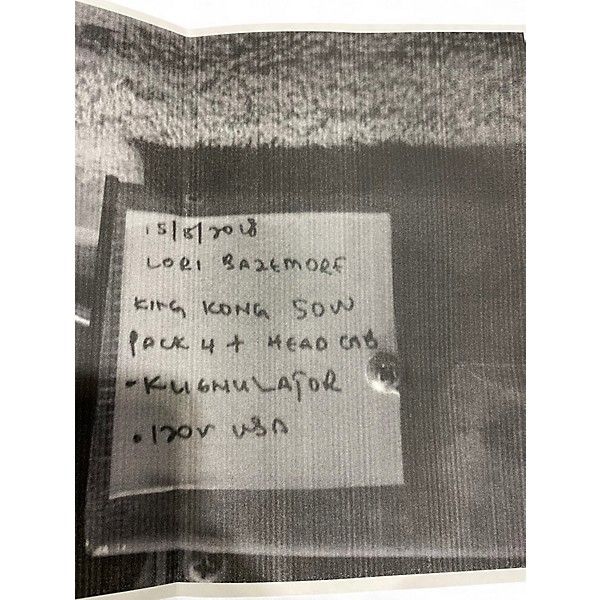 15/8/2018
LORI BAZEMORE
KING KONG 50W
PACK 4 + HEAD CAB
- KLIGMULATOR
. 120V USA